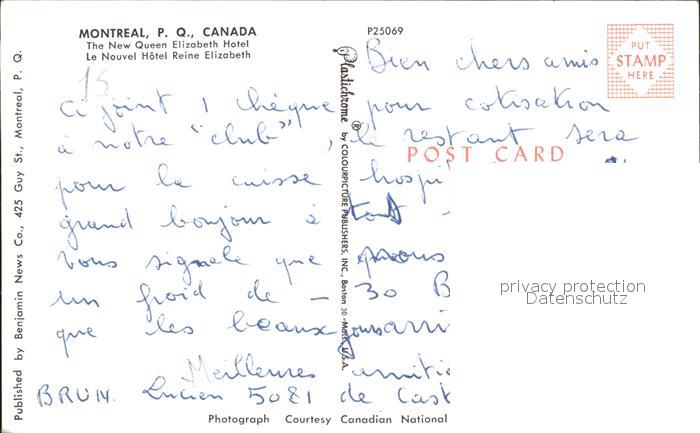 MONTREAL, P. Q., CANADA
The New Queen Elizabeth Hotel
Le Nouvel Hôtel Reine Elizabeth
P25069
PUT
STAMP
HERE
15
Bien chers amis
Ci joint 1 chèque pour cotisation
à notre "club", le restant sera
POST CARD
pour la caisse hospi
grand bonjour à tout
vous signale que nous
un froid de - 30 B
que les beaux jours arri
Meilleures amitié
BRUN. Lucien 5081 de Cast
privacy protection
Datenschutz
Published by Benjamin News Co., 425 Guy St., Montreal, P. Q.
Plastichrome ® by COLOURPICTURE PUBLISHERS, INC., Boston 30, Mass., U.S.A.
Photograph Courtesy Canadian National